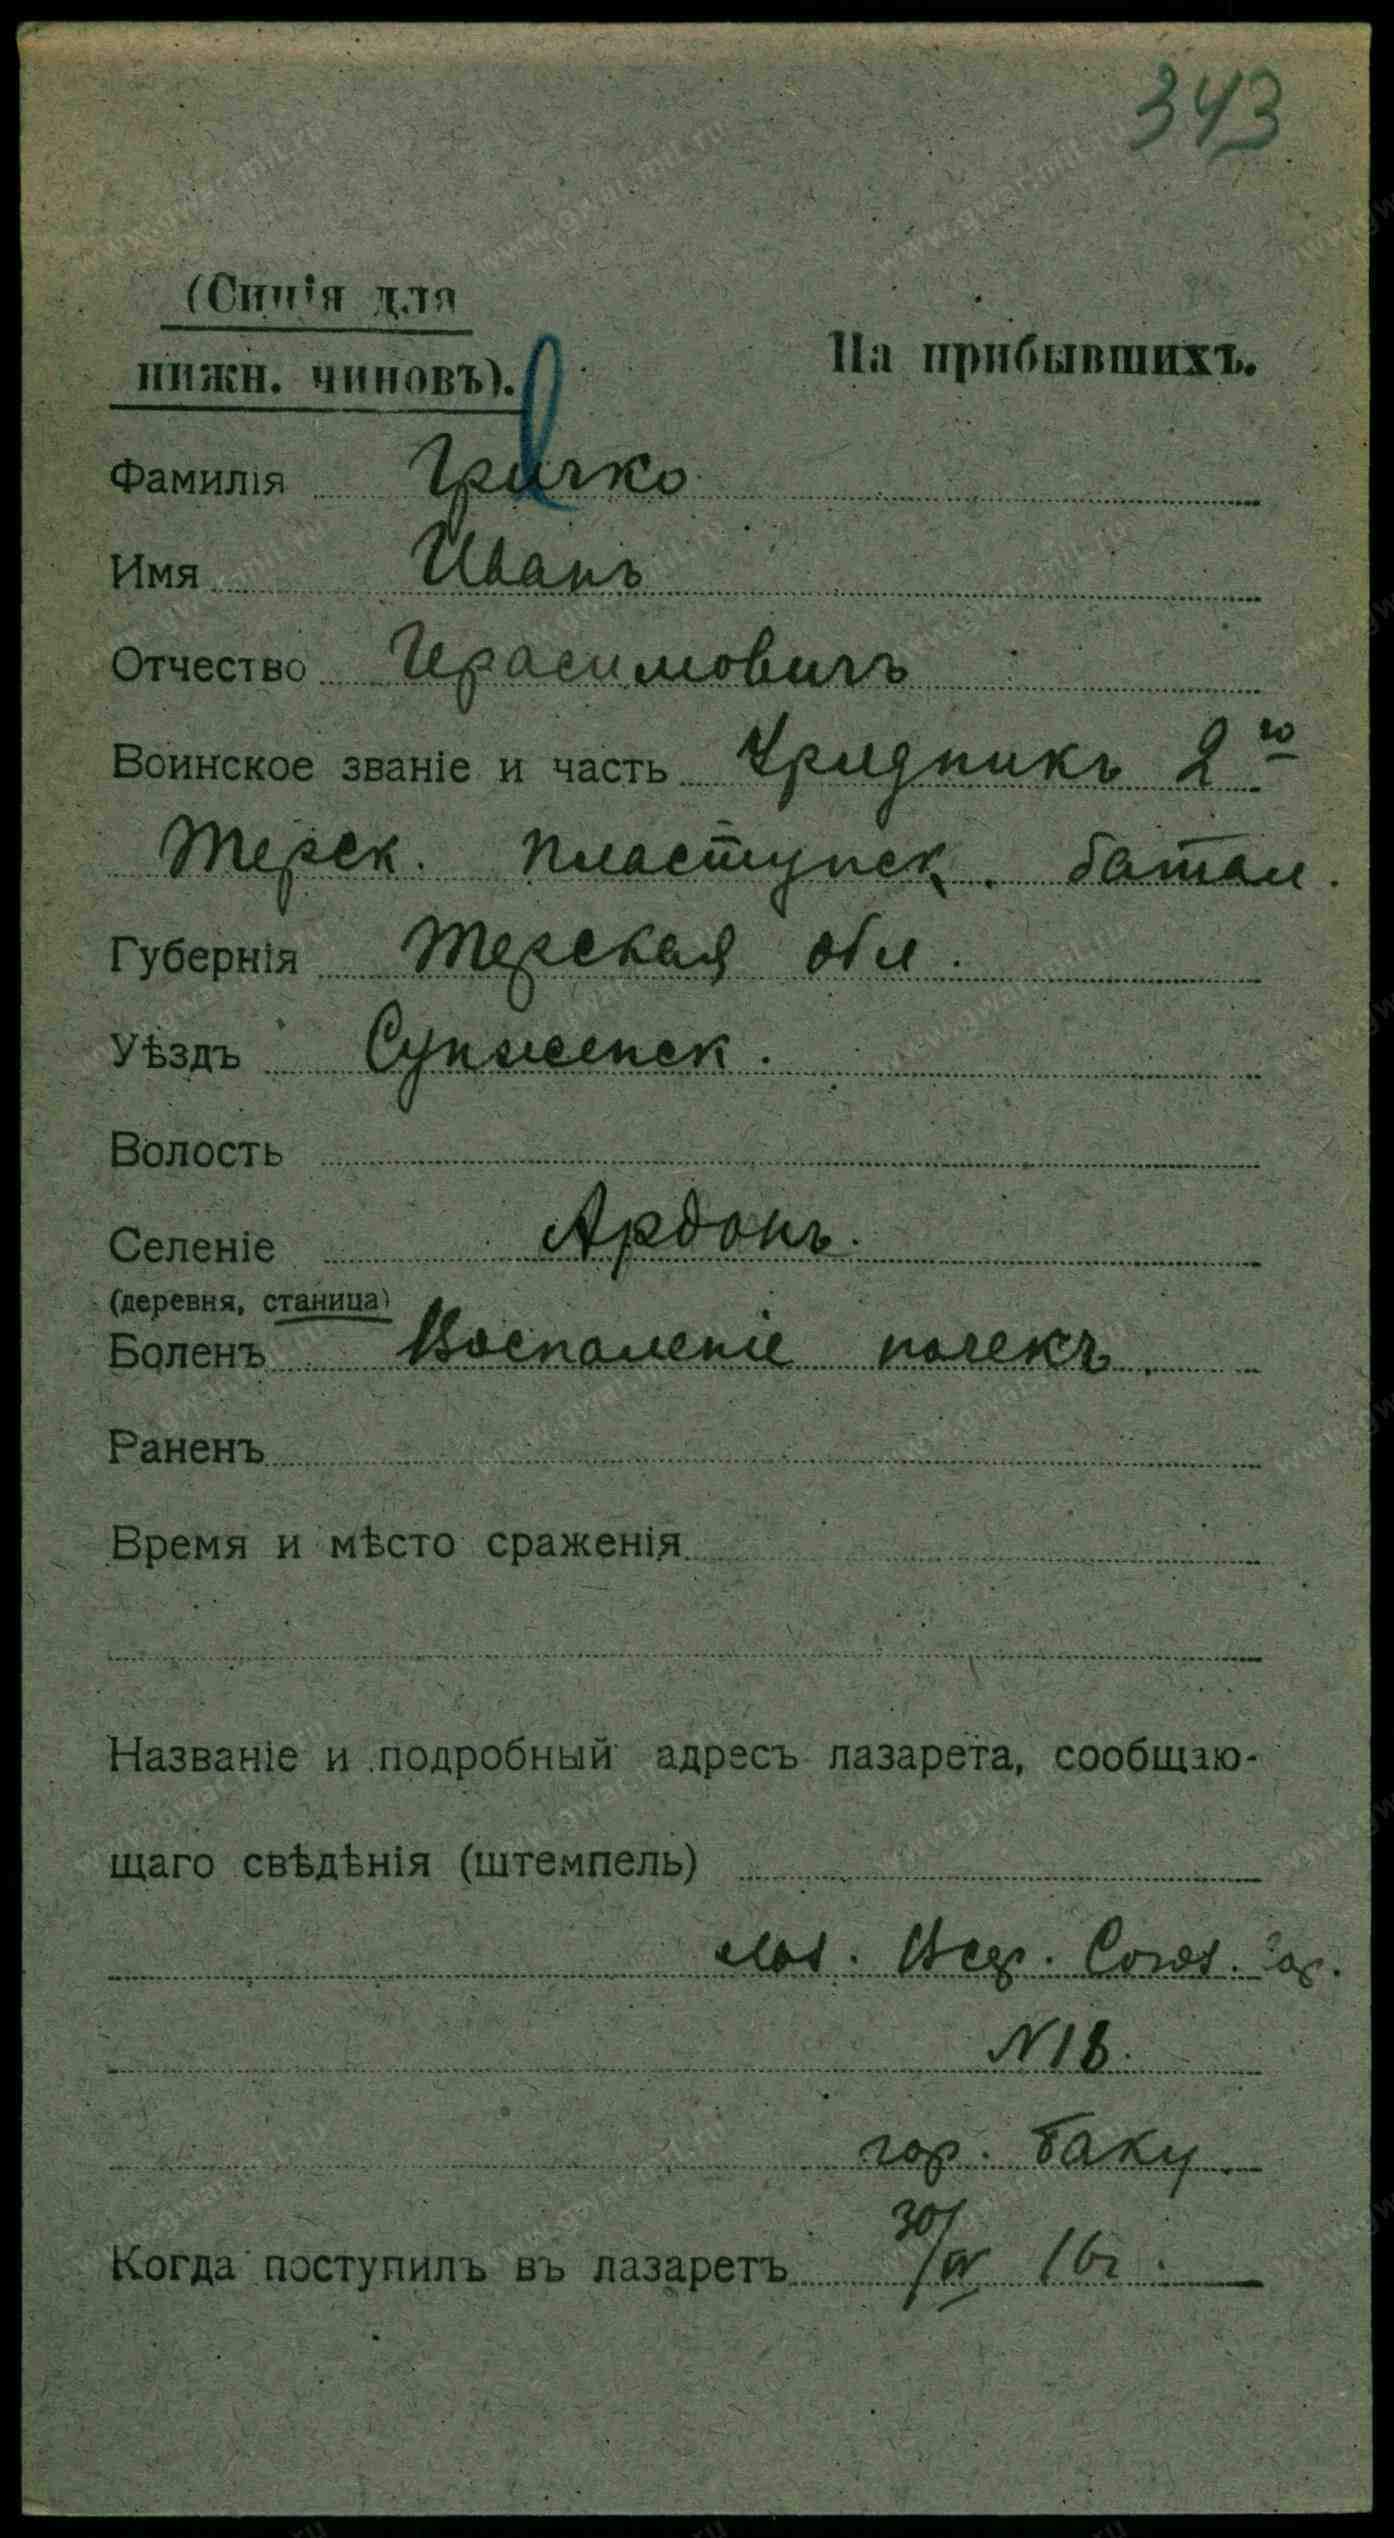 343
(Синія для
нижн. чиновъ).
На прибывшихъ.
Фамилія Гричко
Имя Иванъ
Отчество Герасимовичъ
Воинское званіе и часть Урядникъ 2го
Терск. пластунск. батал.
Губернія Терская обл.
Уѣздъ Сунженск.
Волость
Селеніе Ардонъ.
(деревня, станица)
Боленъ Воспаленіе почекъ.
Раненъ
Время и мѣсто сраженія
Названіе и подробный адресъ лазарета, сообщаю-
щаго свѣдѣнія (штемпель)
Лаз. Всер. Союз. Гор.
N18.
гор. Баку
Когда поступилъ въ лазаретъ 30/IV 16г.